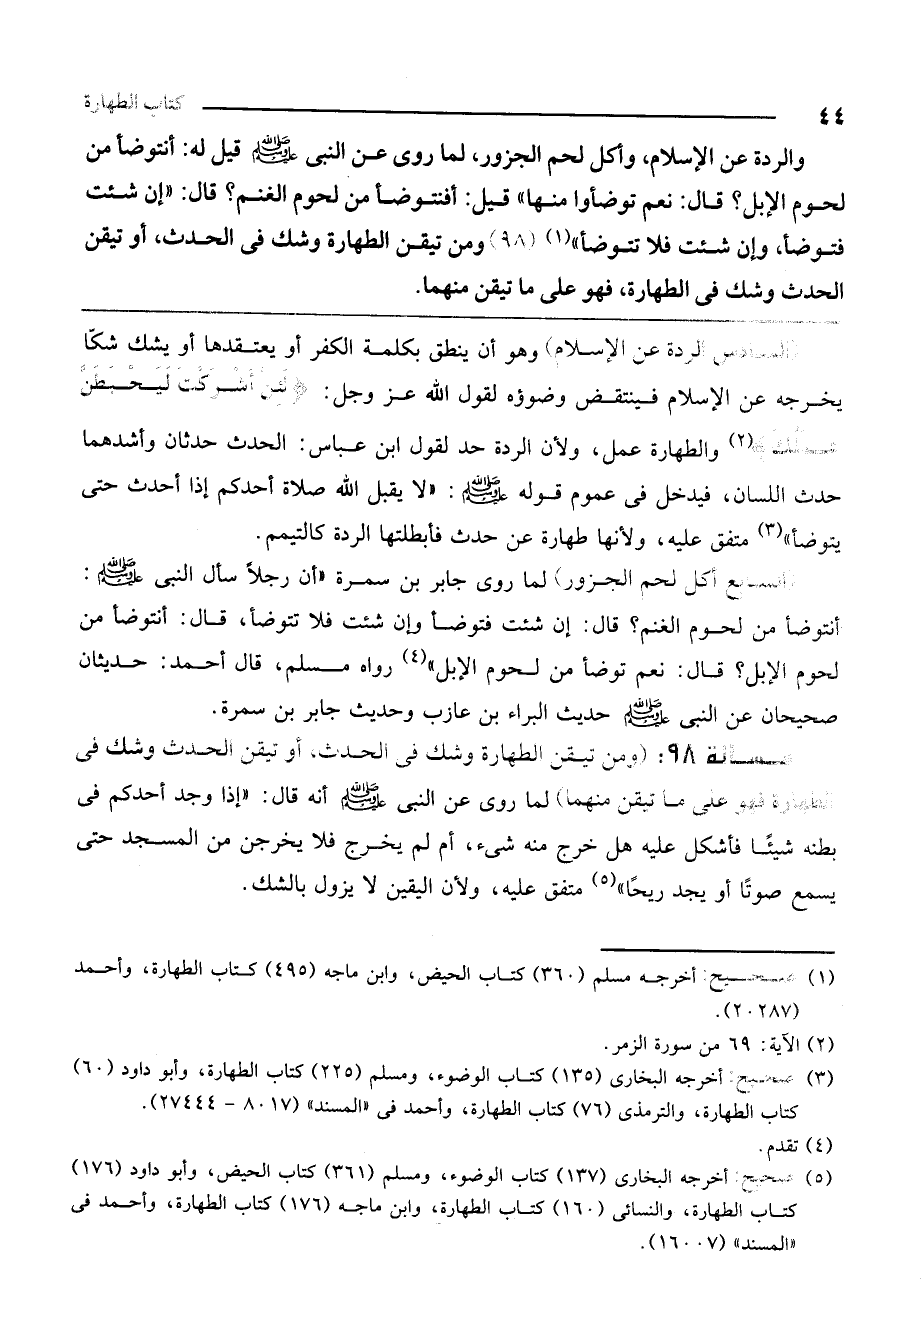 ٤٤ كتاب الطهارة
والردة عن الإسلام، وأكل لحم الجزور، لما روى عـن النبى ﷺ قيل له: أنتوضأ من
لحـوم الإبل؟ قـال: نعم توضأوا منـها» قـيل: أفنتـوضـأ من لحوم الغنـم؟ قال: «إن شـئت
فتـوضأ، وإن شئت فلا تتوضأ»(١) (٩٨) ومن تيقـن الطهارة وشك فى الحدث، أو تيقن
الحدث وشك فى الطهارة، فهو على ما تيقن منهما.
(السادس الردة عن الإسلام) وهو أن ينطق بكلمة الكفر أو يعتـقدها أو يشك شكًا
يخـرجه عن الإسلام فـينتقـض وضوؤه لقول الله عـز وجل: ﴿لَئِنْ أَشْـرَكْتَ لَيَـحْـبَطَنَّ
عَـمَلُكَ﴾(٢) والطهارة عمل، ولأن الردة حد لقول ابن عـباس: الحدث حدثان وأشدهما
حدث اللسان، فيدخل فى عموم قـوله ﷺ: «لا يقبل الله صلاة أحدكم إذا أحدث حتى
يتوضأ»(٣) متفق عليه، ولأنها طهارة عن حدث فأبطلتها الردة كالتيمم.
(السـابع أكل لحم الجـزور) لما روى جابر بن سمـرة «أن رجلاً سأل النبى ﷺ:
أنتوضأ من لحـوم الغنم؟ قال: إن شئت فتوضـأ وإن شئت فلا تتوضأ، قـال: أنتوضأ من
لحوم الإبل؟ قـال: نعم توضأ من لـحوم الإبل»(٤) رواه مـسلم، قال أحـمد: حـديثان
صحيحان عن النبى ﷺ حديث البراء بن عازب وحديث جابر بن سمرة.
مـسـألة ٩٨: (ومن تيـقـن الطهارة وشك فى الحـدث، أو تيقن الحدث وشك فى
الطهارة فهو على مـا تيقن منهما) لما روى عن النبى ﷺ أنه قال: «إذا وجد أحدكم فى
بطنه شيئًـا فأشكل عليه هل خرج منه شىء، أم لم يخـرج فلا يخرجن من المـسجد حتى
يسمع صوتًا أو يجد ريحًا»(٥) متفق عليه، ولأن اليقين لا يزول بالشك.
(١) صـحـيح: أخرجـه مسلم (٣٦٠) كتاب الحيض، وابن ماجه (٤٩٥) كـتاب الطهارة، وأحـمد
(٢٠٢٨٧).
(٢) الآية: ٦٩ من سورة الزمر.
(٣) صحيح: أخرجه البخارى (١٣٥) كتاب الوضوء، ومسلم (٢٢٥) كتاب الطهارة، وأبو داود (٦٠)
كتاب الطهارة، والترمذى (٧٦) كتاب الطهارة، وأحمد فى «المسند» (٨٠١٧ – ٢٧٤٤٤).
(٤) تقدم.
(٥) صحيح: أخرجه البخارى (١٣٧) كتاب الوضوء، ومسلم (٣٦١) كتاب الحيض، وأبو داود (١٧٦)
كتـاب الطهارة، والنسائى (١٦٠) كتـاب الطهارة، وابن ماجـه (١٧٦) كتاب الطهارة، وأحـمد فى
«المسند» (١٦٠٠٧).